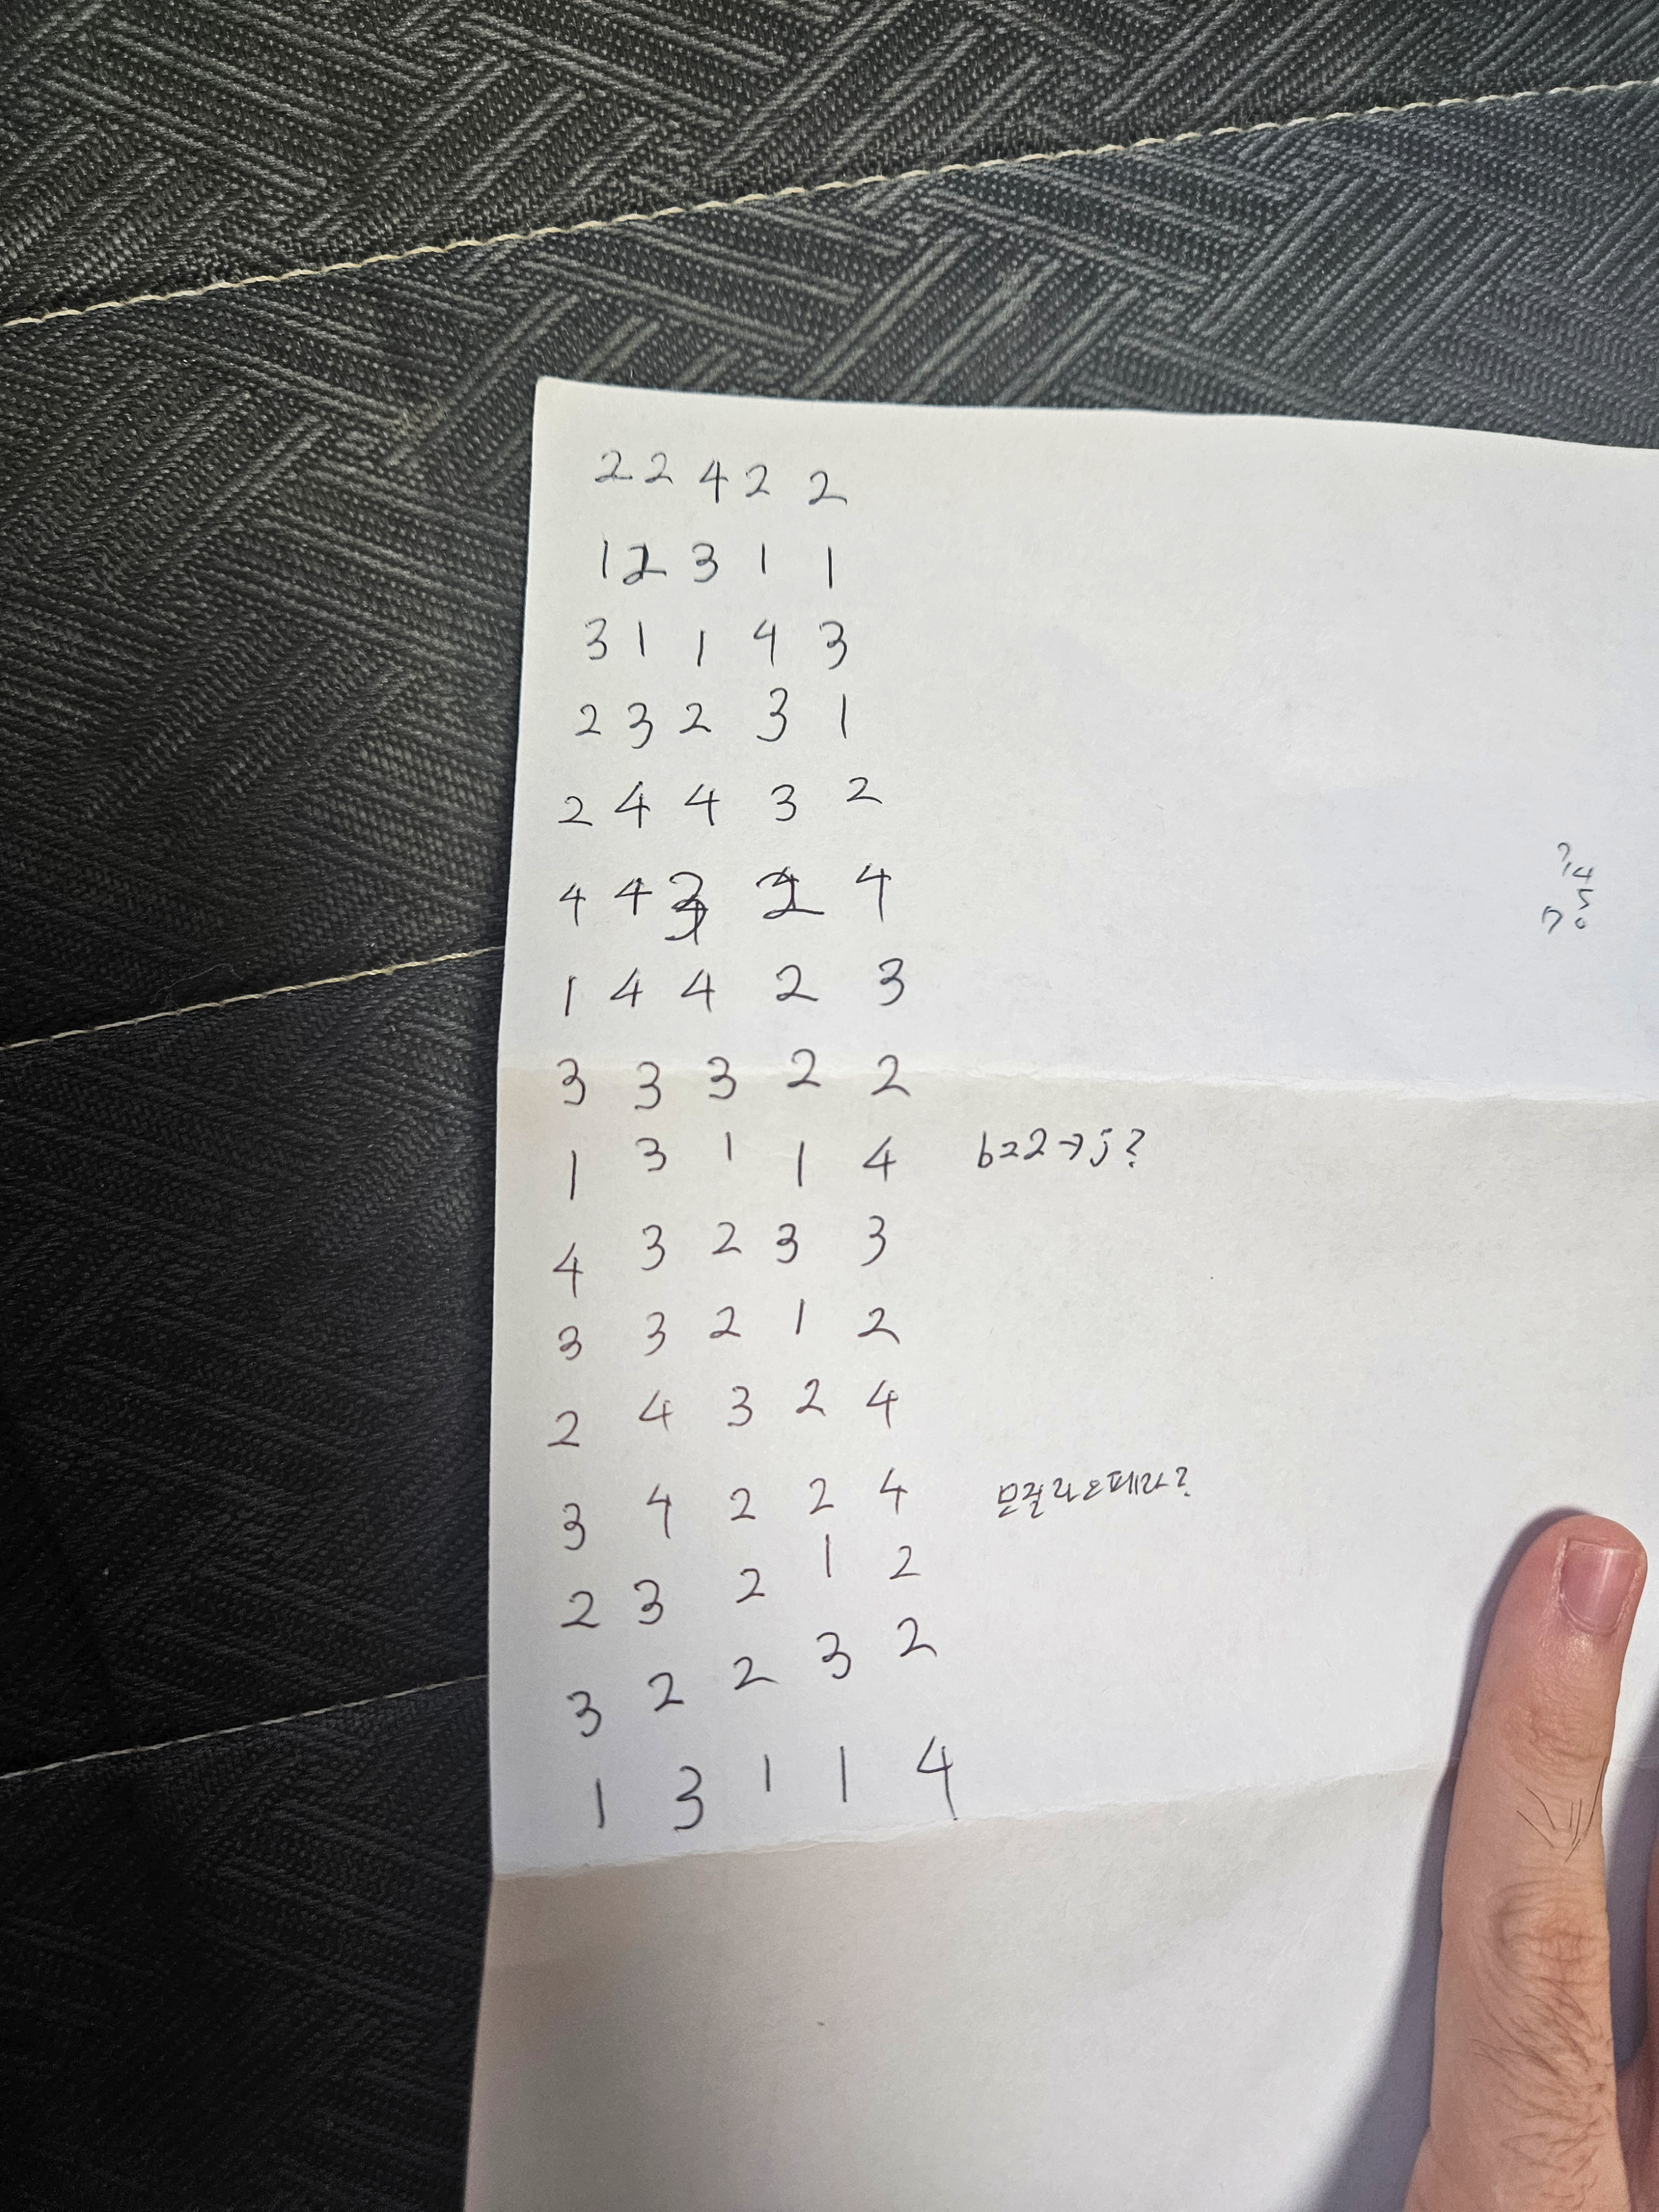 2 2 4 2 2
1 2 3 1 1
3 1 1 4 3
2 3 2 3 1
2 4 4 3 2
4 4 4
1 4 4 2 3
3 3 3 2 2
1 3 1 1 4
4 3 2 3 3
3 3 2 1 2
2 4 3 2 4
3 4 2 2 4
2 3 2 1 2
3 2 2 3 2
1 3 1 1 4